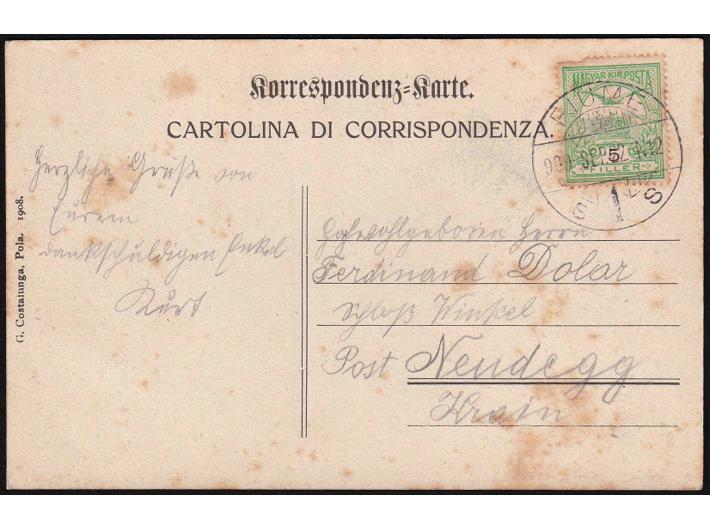 Korrespondenz=Karte.
CARTOLINA DI CORRISPONDENZA.
MAGYAR KIR. POSTA
5
FILLER
FIUME
SEP.
1
G. Costalunga, Pola. 1908.
Herzliche Grüße von
Eurem
dankschuldigen Enkel
Kurt
Hochwohlgeboren Herrn
Ferdinand Dolar
Schloß Winkel
Post Neudegg
Krain